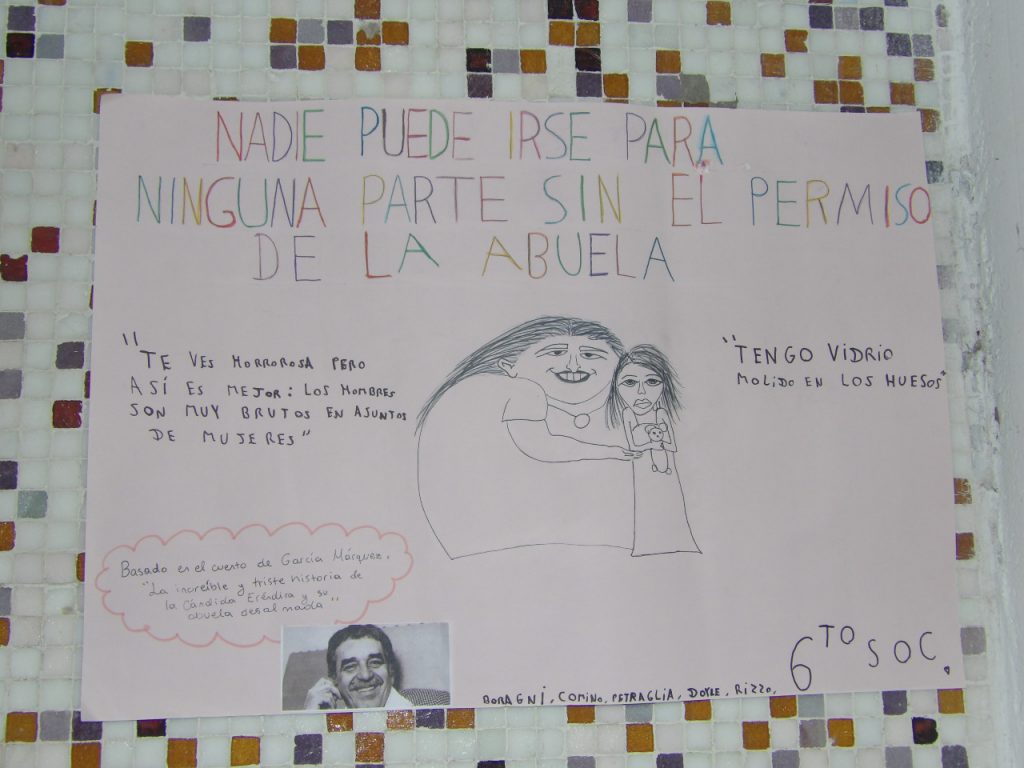 NADIE PUEDE IRSE PARA
NINGUNA PARTE SIN EL PERMISO
DE LA ABUELA
"TE VES HORROROSA PERO
ASÍ ES MEJOR: LOS HOMBRES
SON MUY BRUTOS EN ASUNTOS
DE MUJERES"
"TENGO VIDRIO
MOLIDO EN LOS HUESOS"
Basado en el cuento de García Márquez.
"La increíble y triste historia de
la Cándida Eréndira y su
abuela desalmada"
BORAGNI, COMINO, PETRAGLIA, DOYLE, RIZZO.
6TO SOC.